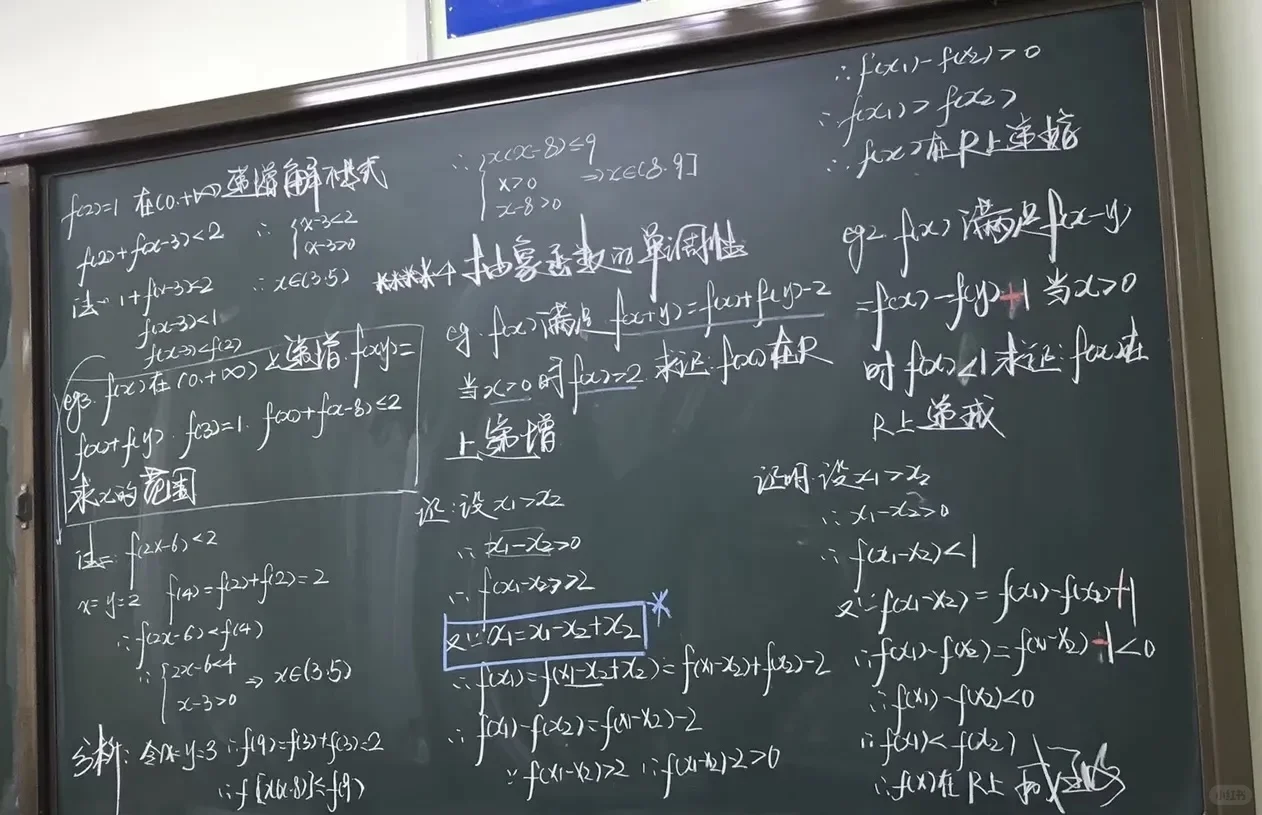 f(2)=1 在(0,+∞)递增解不等式
f(2)+f(x-3)<2 ∴ {x-3<2
x-3>0
法一 1+f(x-3)<2 ∴x∈(3,5)
f(x-3)<1
f(x-3)<f(2)
eg3. f(x)在(0,+∞)上递增.f(xy)=
f(x)+f(y). f(3)=1. f(x)+f(x-8)≤2
求x的范围
法二 f(2x-6)<2
x=y=2 f(4)=f(2)+f(2)=2
∴f(2x-6)<f(4)
∴{2x-6<4
x-3>0 ⇒ x∈(3,5)
分析:令x=y=3 ∴f(9)=f(3)+f(3)=2
∴f[x(x-8)]≤f(9)
∴{x(x-8)≤9
x>0 ⇒x∈(8,9]
x-8>0
****4 抽象函数的单调性
eg. f(x)满足 f(x+y)=f(x)+f(y)-2
当x>0时f(x)>2 求证:f(x)在R
上递增
证:设x1>x2
∴x1-x2>0
∴f(x1-x2)>2
又∵x1=x1-x2+x2 *
∴f(x1)=f(x1-x2+x2)=f(x1-x2)+f(x2)-2
∴f(x1)-f(x2)=f(x1-x2)-2
∵f(x1-x2)>2 ∴f(x1-x2)-2>0
∴f(x1)-f(x2)>0
∴f(x1)>f(x2)
∴f(x)在R上递增
eg2 f(x)满足f(x-y)
=f(x)-f(y)+1 当x>0
时 f(x)<1 求证:f(x)在
R上递减
证明:设x1>x2
∴x1-x2>0
∴f(x1-x2)<1
又∵f(x1-x2)=f(x1)-f(x2)+1
∴f(x1)-f(x2)=f(x1-x2)-1<0
∴f(x1)-f(x2)<0
∴f(x1)<f(x2)
∴f(x)在R上
小红书